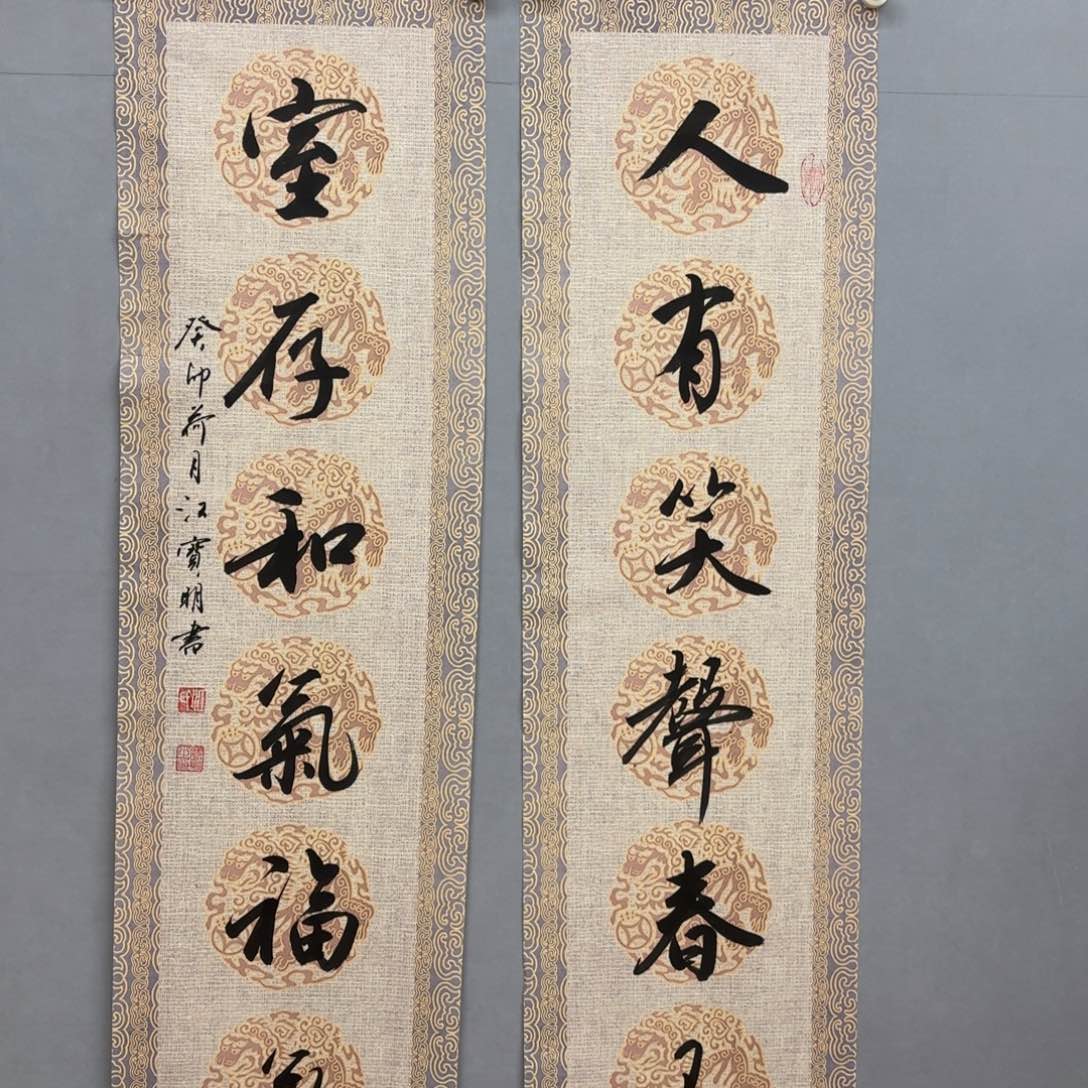 人有笑聲春
室存和氣福
癸卯荷月江寶明書